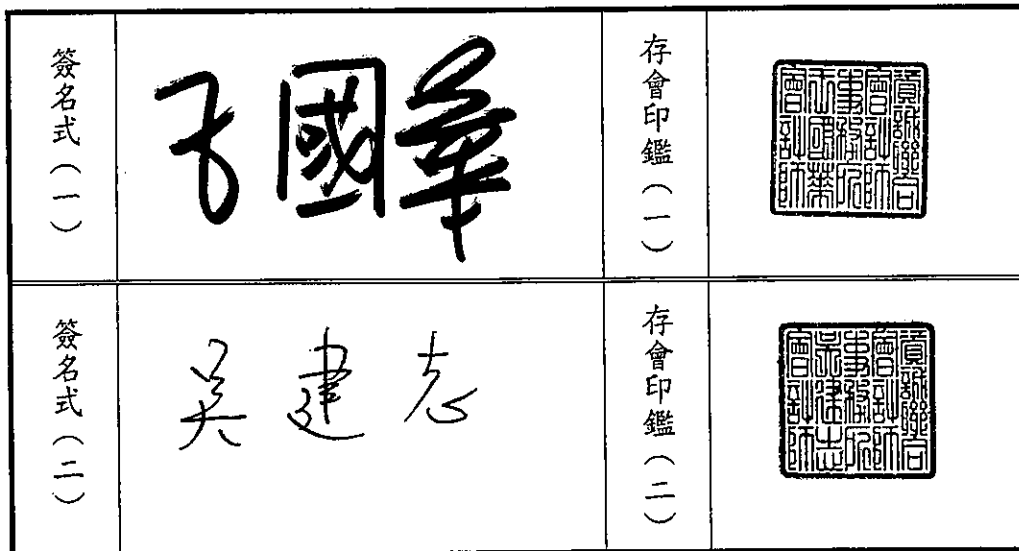 簽名式(一)
王國華
存會印鑑(一)
資誠聯合
會計師
事務所
王國華
會計師
簽名式(二)
吳建志
存會印鑑(二)
資誠聯合
會計師
事務所
吳建志
會計師